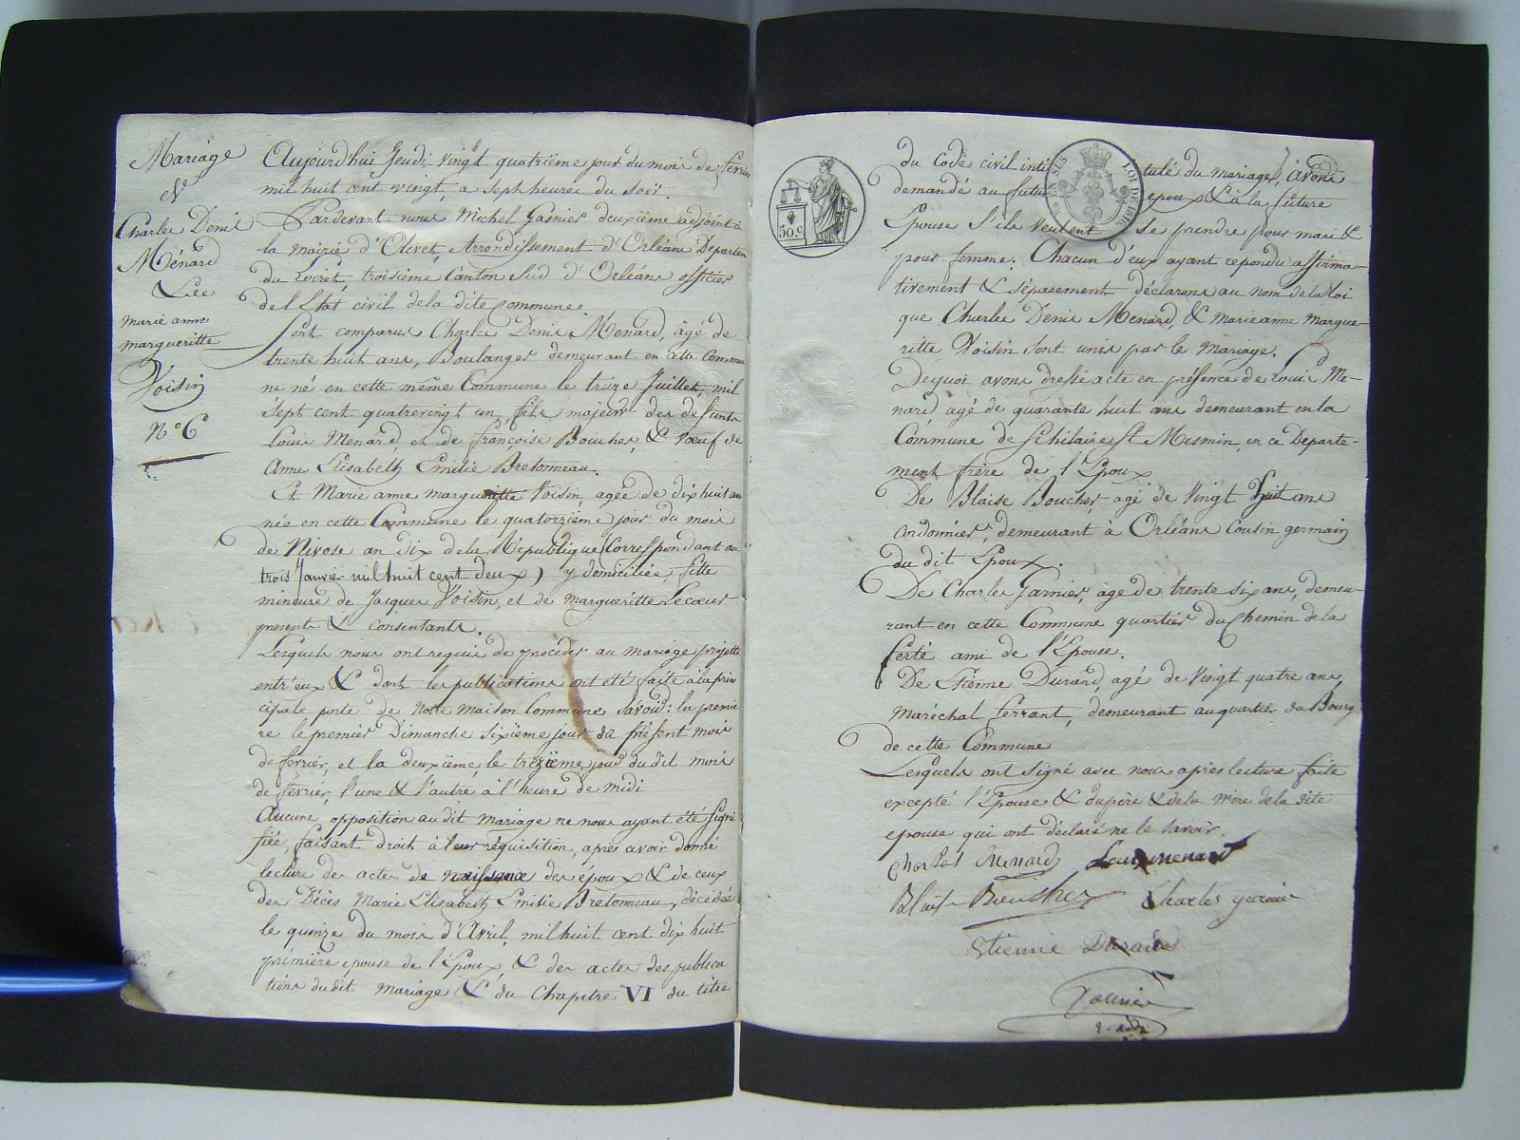 Mariage
N.
Charles Denis
Ménard
& Les
marie anne
margueritte
Voisin
N° 6
Aujourdhui Jeudi vingt quatrième jour du mois de février
mil huit cent vingt, a sept heures du soir.
Pardevant nous Michel Garnier deuxième adjoint à
la mairie d'Olivet, Arrondissement d'Orléans Departem
du Loiret, troisième Canton Sud d'Orléans officier
de l'Etat civil de la dite Commune.
Sont comparus Charles Denis Menard, âgé de
trente huit ans, Boulanger demeurant en cette Commu
ne né en cette même Commune le treize Juillet, mil
sept cent quatrevingt un, fils majeur des defunts
Louis Menard, et de françoise Boucher, & voeuf de
Anne Elisabeth Emilie Bretonneau.
Et Marie anne margueritte Voisin, agée de dix huit ans
née en cette Commune le quatorzième jour du mois
de Nivose an dix de la République (Correspondant au
trois Janvier mil huit cent deux) y domiciliée, fille
mineure de Jacques Voisin, et de margueritte Lecoeur
presents & consentants.
Lesquels nous ont requis de procéder au mariage projetté
entr'eux & dont les publications ont été faite à la prin
cipale porte de Notre maison Commune savoir: la premiè
re le premier Dimanche sixième jour du présent mois
de février, et la deuxième, le treizième jour du dit mois
de février, l'une & l'autre à l'heure de midi
Aucune opposition au dit mariage ne nous ayant été signi
fiée, faisant droit à leur réquisition, après avoir donné
lecture des actes de naissance des époux & de ceux
des Décès Marie Elisabeth Emilie Bretonneau, décédée
le quinze du mois d'Avril, mil huit cent dix huit
première epouse de l'Epoux, & des actes des publica
tions du dit mariage & du Chapitre VI du titre
50.c
EN SUS
LOI DE 1816
du Code civil intitulé du mariage, avons
demandé au futur epoux & à la future
Epouse s'ils veulent se prendre pour mari &
pour femme. Chacun d'eux ayant repondu affirma-
tivement & séparement déclarons au nom de la loi
que Charles Denis Menard, & marie anne margue-
ritte Voisin sont unis par le mariage.
De quoi avons dressé acte en présence de Louis Me-
nard, agé de quarante huit ans demeurant en la
Commune de St hilaire St Mesmin, en ce Departe-
ment frère de l'Epoux
De Blaise Boucher, agé de vingt huit ans
cordonnier, demeurant à Orléans Cousin germain
du dit Epoux.
De Charles Garnier, âgé de trente six ans, demeu-
rant en cette Commune quartier du Chemin de la
ferté ami de l'Epouse.
De Etienne Durand, agé de vingt quatre ans,
Maréchal ferrant, demeurant au quartier du Bourg
de cette Commune
Lesquels ont signé avec nous après lecture faite
excepté l'Epouse & du père & de la mère de la dite
epouse qui ont déclaré ne le savoir.
Charles Menard Louis menard
Blaise Boucher Charles garnier
Etienne Durand
Garnier